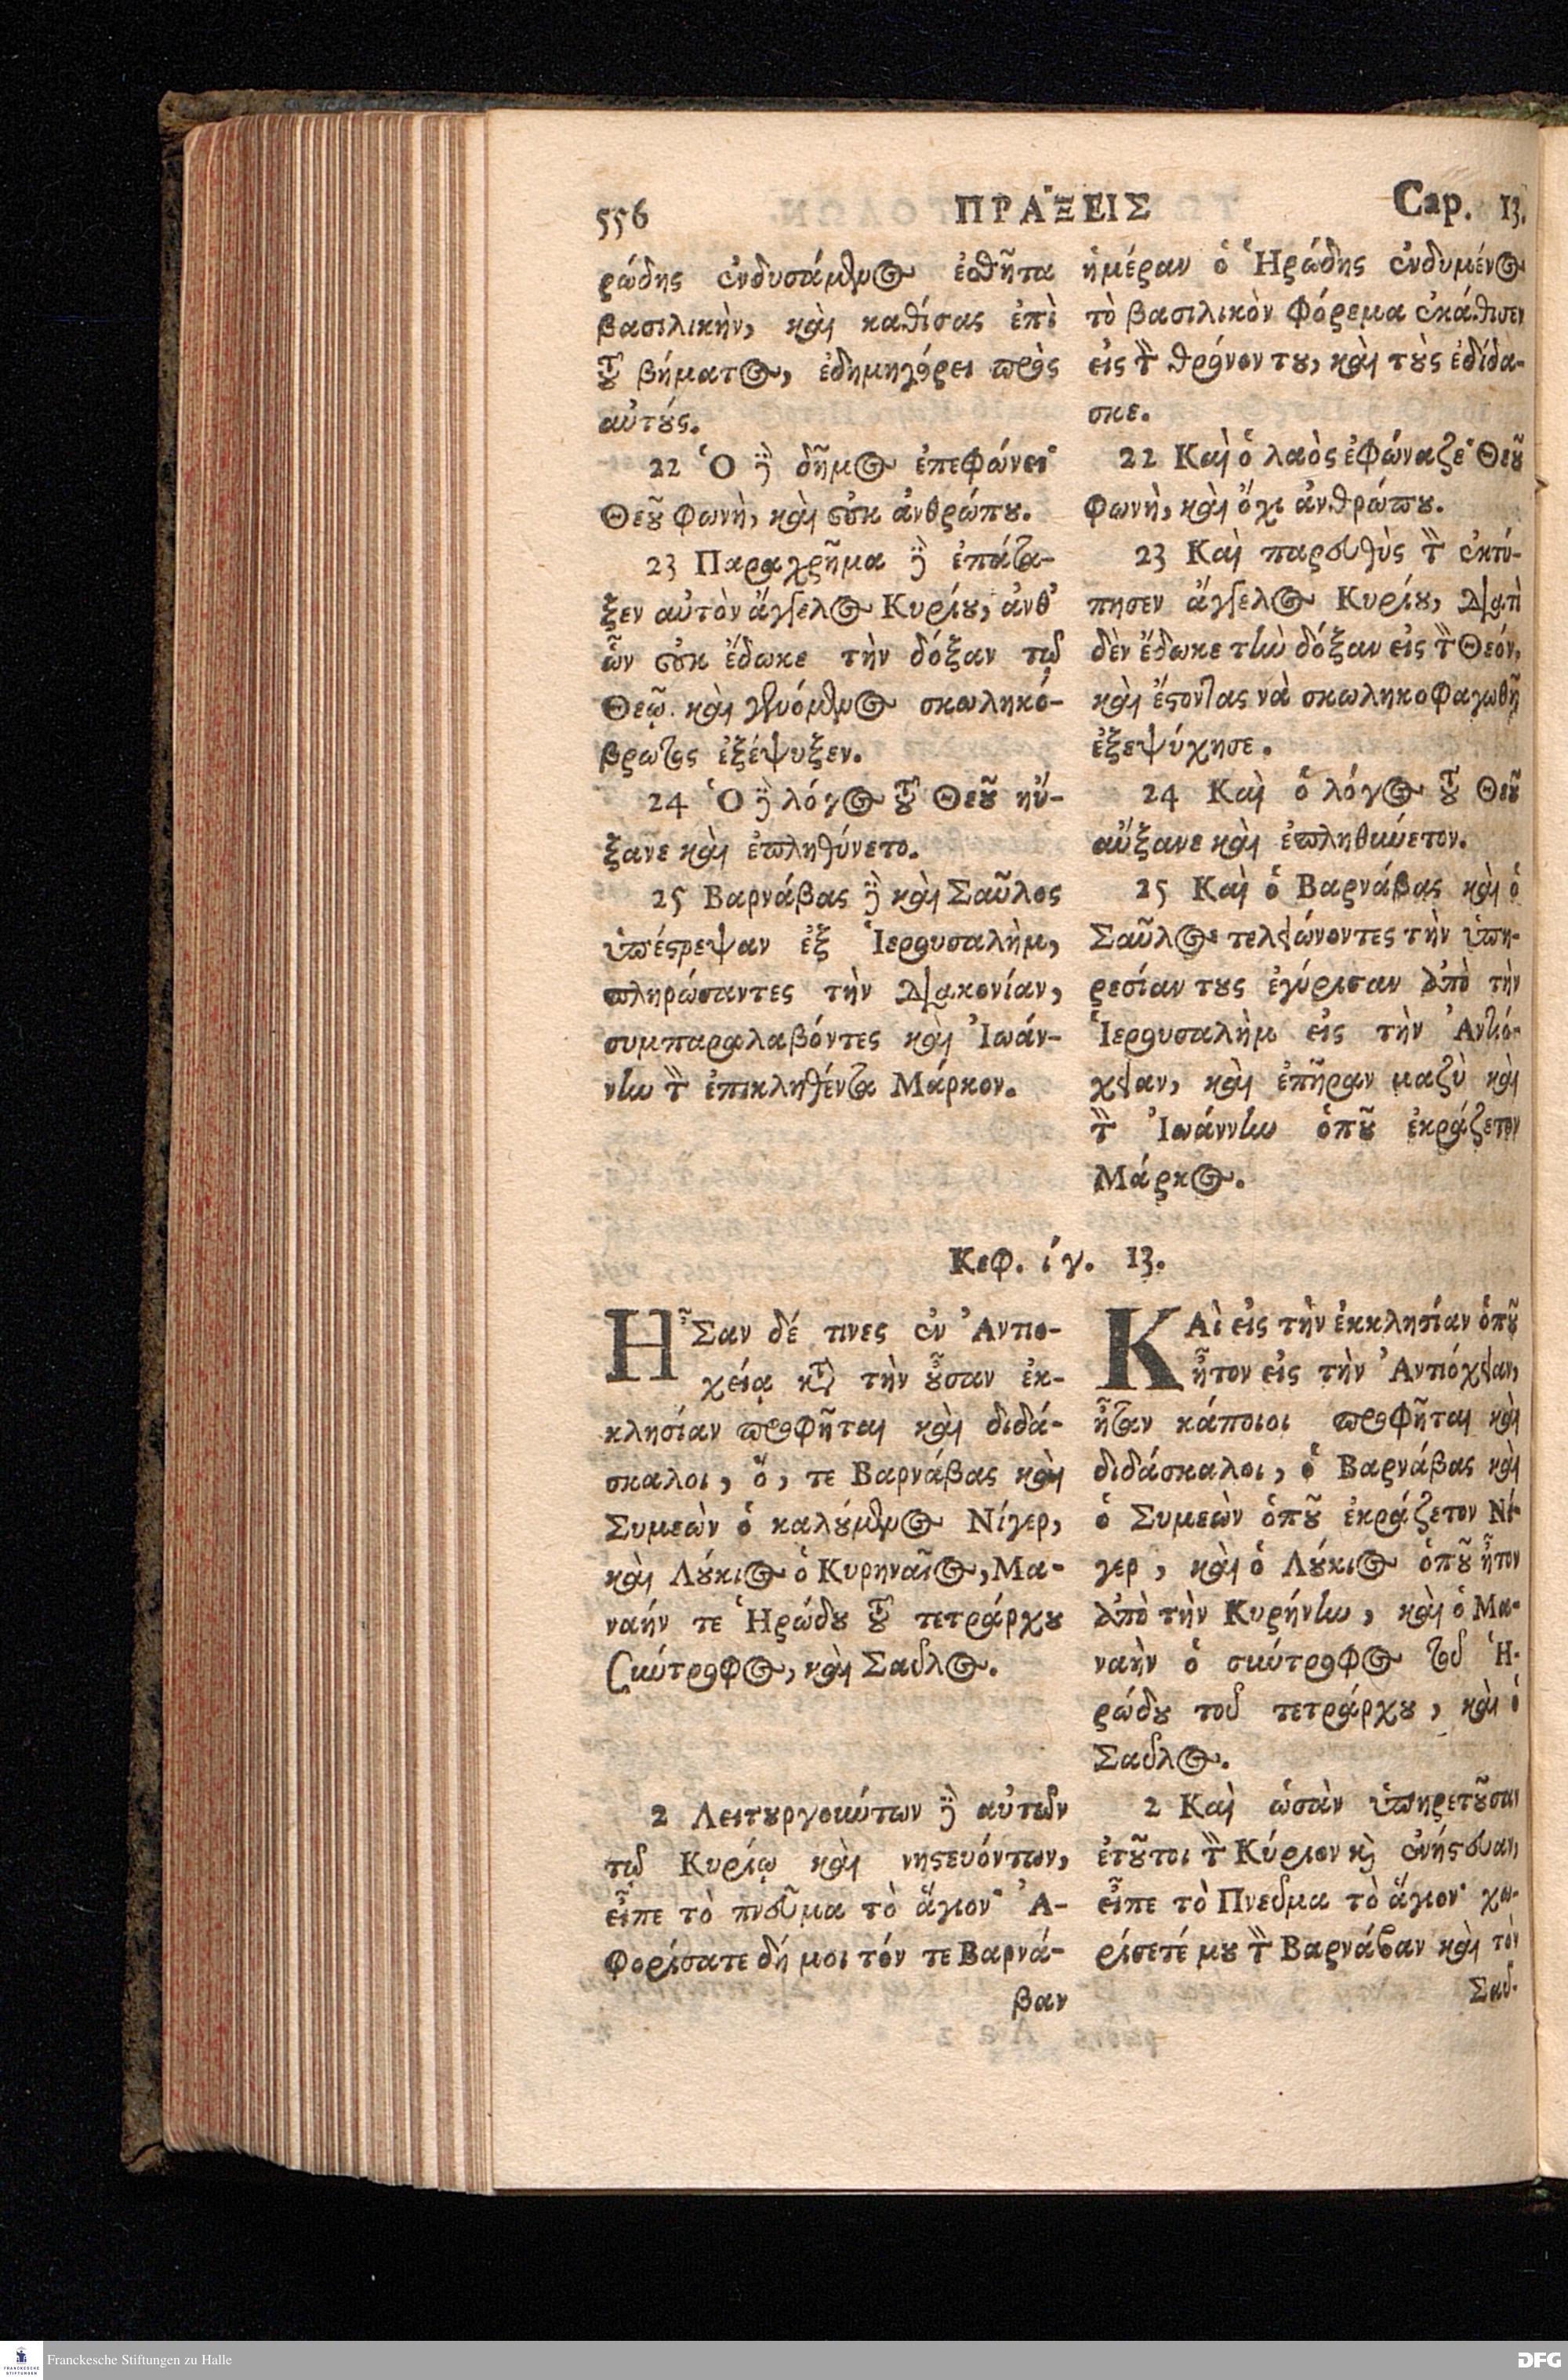 556 ΠΡΑΞΕΙΣ Cap. 13.
ρώδης ἐνδυσάμενος ἐσθῆτα
βασιλικὴν, καὶ καθίσας ἐπὶ
τοῦ βήματος, ἐδημηγόρει πρὸς
αὐτούς.
22 Ὁ δὲ δῆμος ἐπεφώνει·
Θεοῦ φωνὴ, καὶ οὐκ ἀνθρώπου.
23 Παραχρῆμα δὲ ἐπάτα-
ξεν αὐτὸν ἄγγελος Κυρίου, ἀνθ'
ὧν οὐκ ἔδωκε τὴν δόξαν τῷ
Θεῷ. καὶ γενόμενος σκωληκό-
βρωτος ἐξέψυξεν.
24 Ὁ δὲ λόγος τοῦ Θεοῦ ηὔ-
ξανε καὶ ἐπληθύνετο.
25 Βαρνάβας δὲ καὶ Σαῦλος
ὑπέστρεψαν ἐξ Ἱερουσαλὴμ,
πληρώσαντες τὴν διακονίαν,
συμπαραλαβόντες καὶ Ἰωάν-
νην τὸν ἐπικληθέντα Μάρκον.
ἡμέραν ὁ Ἡρώδης ἐνδυμένος
τὸ βασιλικὸν φόρεμα ἐκάθισεν
εἰς τὸν θρόνον του, καὶ τοὺς ἐδίδα-
σκε.
22 Καὶ ὁ λαὸς ἐφώναζε· Θεοῦ
φωνὴ, καὶ ὄχι ἀνθρώπου.
23 Καὶ παρευθὺς τὸν ἐκτύ-
πησεν ἄγγελος Κυρίου, διατὶ
δὲν ἔδωκε τὴν δόξαν εἰς τὸν Θεόν,
καὶ ἔστοντας νὰ σκωληκοφαγωθῆ
ἐξεψύχησε.
24 Καὶ ὁ λόγος τοῦ Θεοῦ
αὔξανε καὶ ἐπληθαίνετον.
25 Καὶ ὁ Βαρνάβας καὶ ὁ
Σαῦλος τελειώνοντες τὴν ὑπη-
ρεσίαν τους ἐγύρισαν ἀπὸ τὴν
Ἱερουσαλὴμ εἰς τὴν Ἀντιό-
χειαν, καὶ ἐπῆραν μαζὺ καὶ
τὸν Ἰωάννην ὁποῦ ἐκράζετον
Μάρκος.
Κεφ. ιγ. 13.
ΗΣαν δέ τινες ἐν Ἀντιο-
χείᾳ κατὰ τὴν οὖσαν ἐκ-
κλησίαν προφῆται καὶ διδά-
σκαλοι, ὅ, τε Βαρνάβας καὶ
Συμεὼν ὁ καλούμενος Νίγερ,
καὶ Λούκιος ὁ Κυρηναῖος, Μα-
ναήν τε Ἡρώδου τοῦ τετράρχου
σύντροφος, καὶ Σαῦλος.
2 Λειτουργούντων δὲ αὐτῶν
τῷ Κυρίῳ καὶ νηστευόντων,
εἶπε τὸ πνεῦμα τὸ ἅγιον· Ἀ-
φορίσατε δή μοι τόν τε Βαρνά-
βαν
ΚΑὶ εἰς τὴν ἐκκλησίαν ὁποῦ
ἦτον εἰς τὴν Ἀντιόχειαν,
ἦταν κάποιοι προφῆται καὶ
διδάσκαλοι, ὁ Βαρνάβας καὶ
ὁ Συμεὼν ὁποῦ ἐκράζετον Νί-
γερ, καὶ ὁ Λούκιος ὁποῦ ἦτον
ἀπὸ τὴν Κυρήνην, καὶ ὁ Μα-
ναὴν ὁ σύντροφος τοῦ Ἡ-
ρώδου τοῦ τετράρχου, καὶ ὁ
Σαῦλος.
2 Καὶ ὡσὰν ὑπηρετοῦσαν
ἐτοῦτοι τὸν Κύριον καὶ ἐνήστευαν,
εἶπε τὸ Πνεῦμα τὸ ἅγιον· χω-
ρίσετέ μου τὸν Βαρνάβαν καὶ τὸν
Σαῦ-
Franckesche Stiftungen zu Halle
DFG